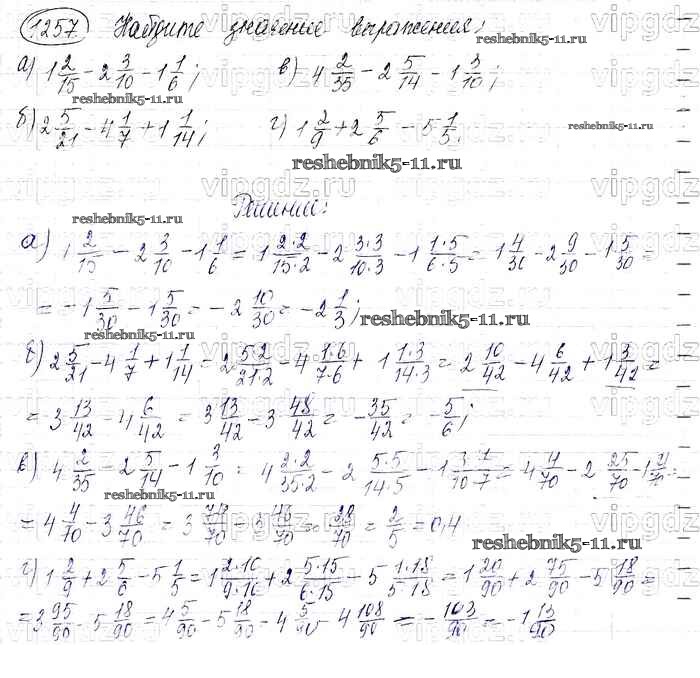 1257. Найдите значение выражения:
а) 1 2/15 − 2 3/10 − 1 1/6; в) 4 2/35 − 2 5/14 − 1 3/10;
reshebnik5-11.ru
б) 2 5/21 − 4 1/7 + 1 1/14; г) 1 2/9 + 2 5/6 − 5 1/5.
reshebnik5-11.ru
reshebnik5-11.ru
reshebnik5-11.ru
Решение:
reshebnik5-11.ru
а) 1 2/15 − 2 3/10 − 1 1/6 = 1 2·2/15·2 − 2 3·3/10·3 − 1 1·5/6·5 = 1 4/30 − 2 9/30 − 1 5/30 =
= −1 5/30 − 1 5/30 = −2 10/30 = −2 1/3;
reshebnik5-11.ru
reshebnik5-11.ru
б) 2 5/21 − 4 1/7 + 1 1/14 = 2 5·2/21·2 − 4 1·6/7·6 + 1 1·3/14·3 = 2 10/42 − 4 6/42 + 1 3/42 =
= 3 13/42 − 4 6/42 = 3 13/42 − 3 48/42 = −35/42 = −5/6;
в) 4 2/35 − 2 5/14 − 1 3/10 = 4 2·2/35·2 − 2 5·5/14·5 − 1 3·7/10·7 = 4 4/70 − 2 25/70 − 1 21/70 =
reshebnik5-11.ru
= 4 4/70 − 3 46/70 = 3 74/70 − 3 46/70 = 28/70 = 2/5 = 0,4
reshebnik5-11.ru
г) 1 2/9 + 2 5/6 − 5 1/5 = 1 2·10/9·10 + 2 5·15/6·15 − 5 1·18/5·18 = 1 20/90 + 2 75/90 − 5 18/90 =
= 3 95/90 − 5 18/90 = 4 5/90 − 5 18/90 = 4 5/90 − 4 108/90 = −103/90 = −1 13/90
vipgdz.ru